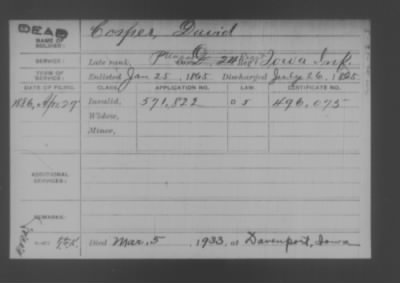 DEAD
Cosper, David
NAME OF SOLDIER:
SERVICE: Late rank, 24 Reg't Iowa Inf.
TERM OF SERVICE: Enlisted Jan 25, 1865 Discharged July 26, 1865
DATE OF FILING. CLASS. APPLICATION NO. LAW. CERTIFICATE NO.
1886, Apr. 29 Invalid, 571,822 496,075
Widow,
Minor,
ADDITIONAL SERVICES:
REMARKS:
Died Mar. 5, 1933, at Davenport, Iowa